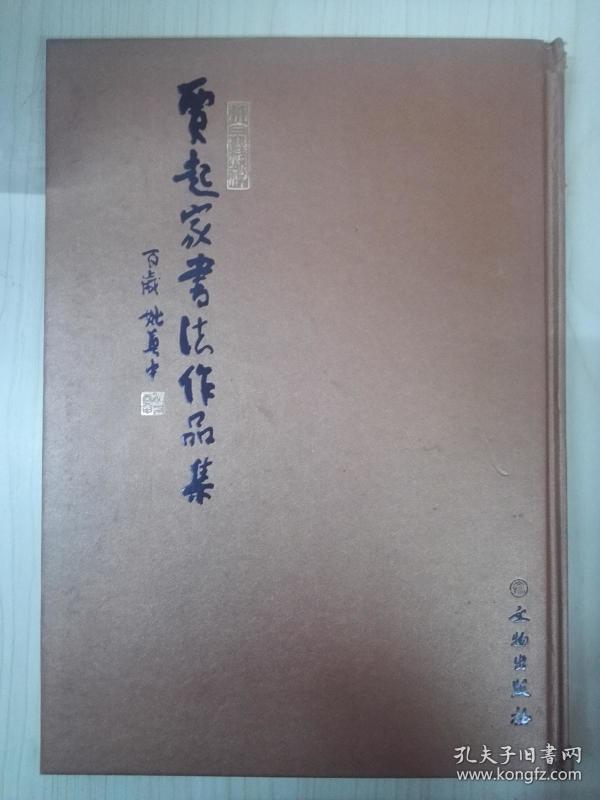 贾起家书法作品集
百岁 姚奠中
文物出版社
孔夫子旧书网
www.kongfz.com